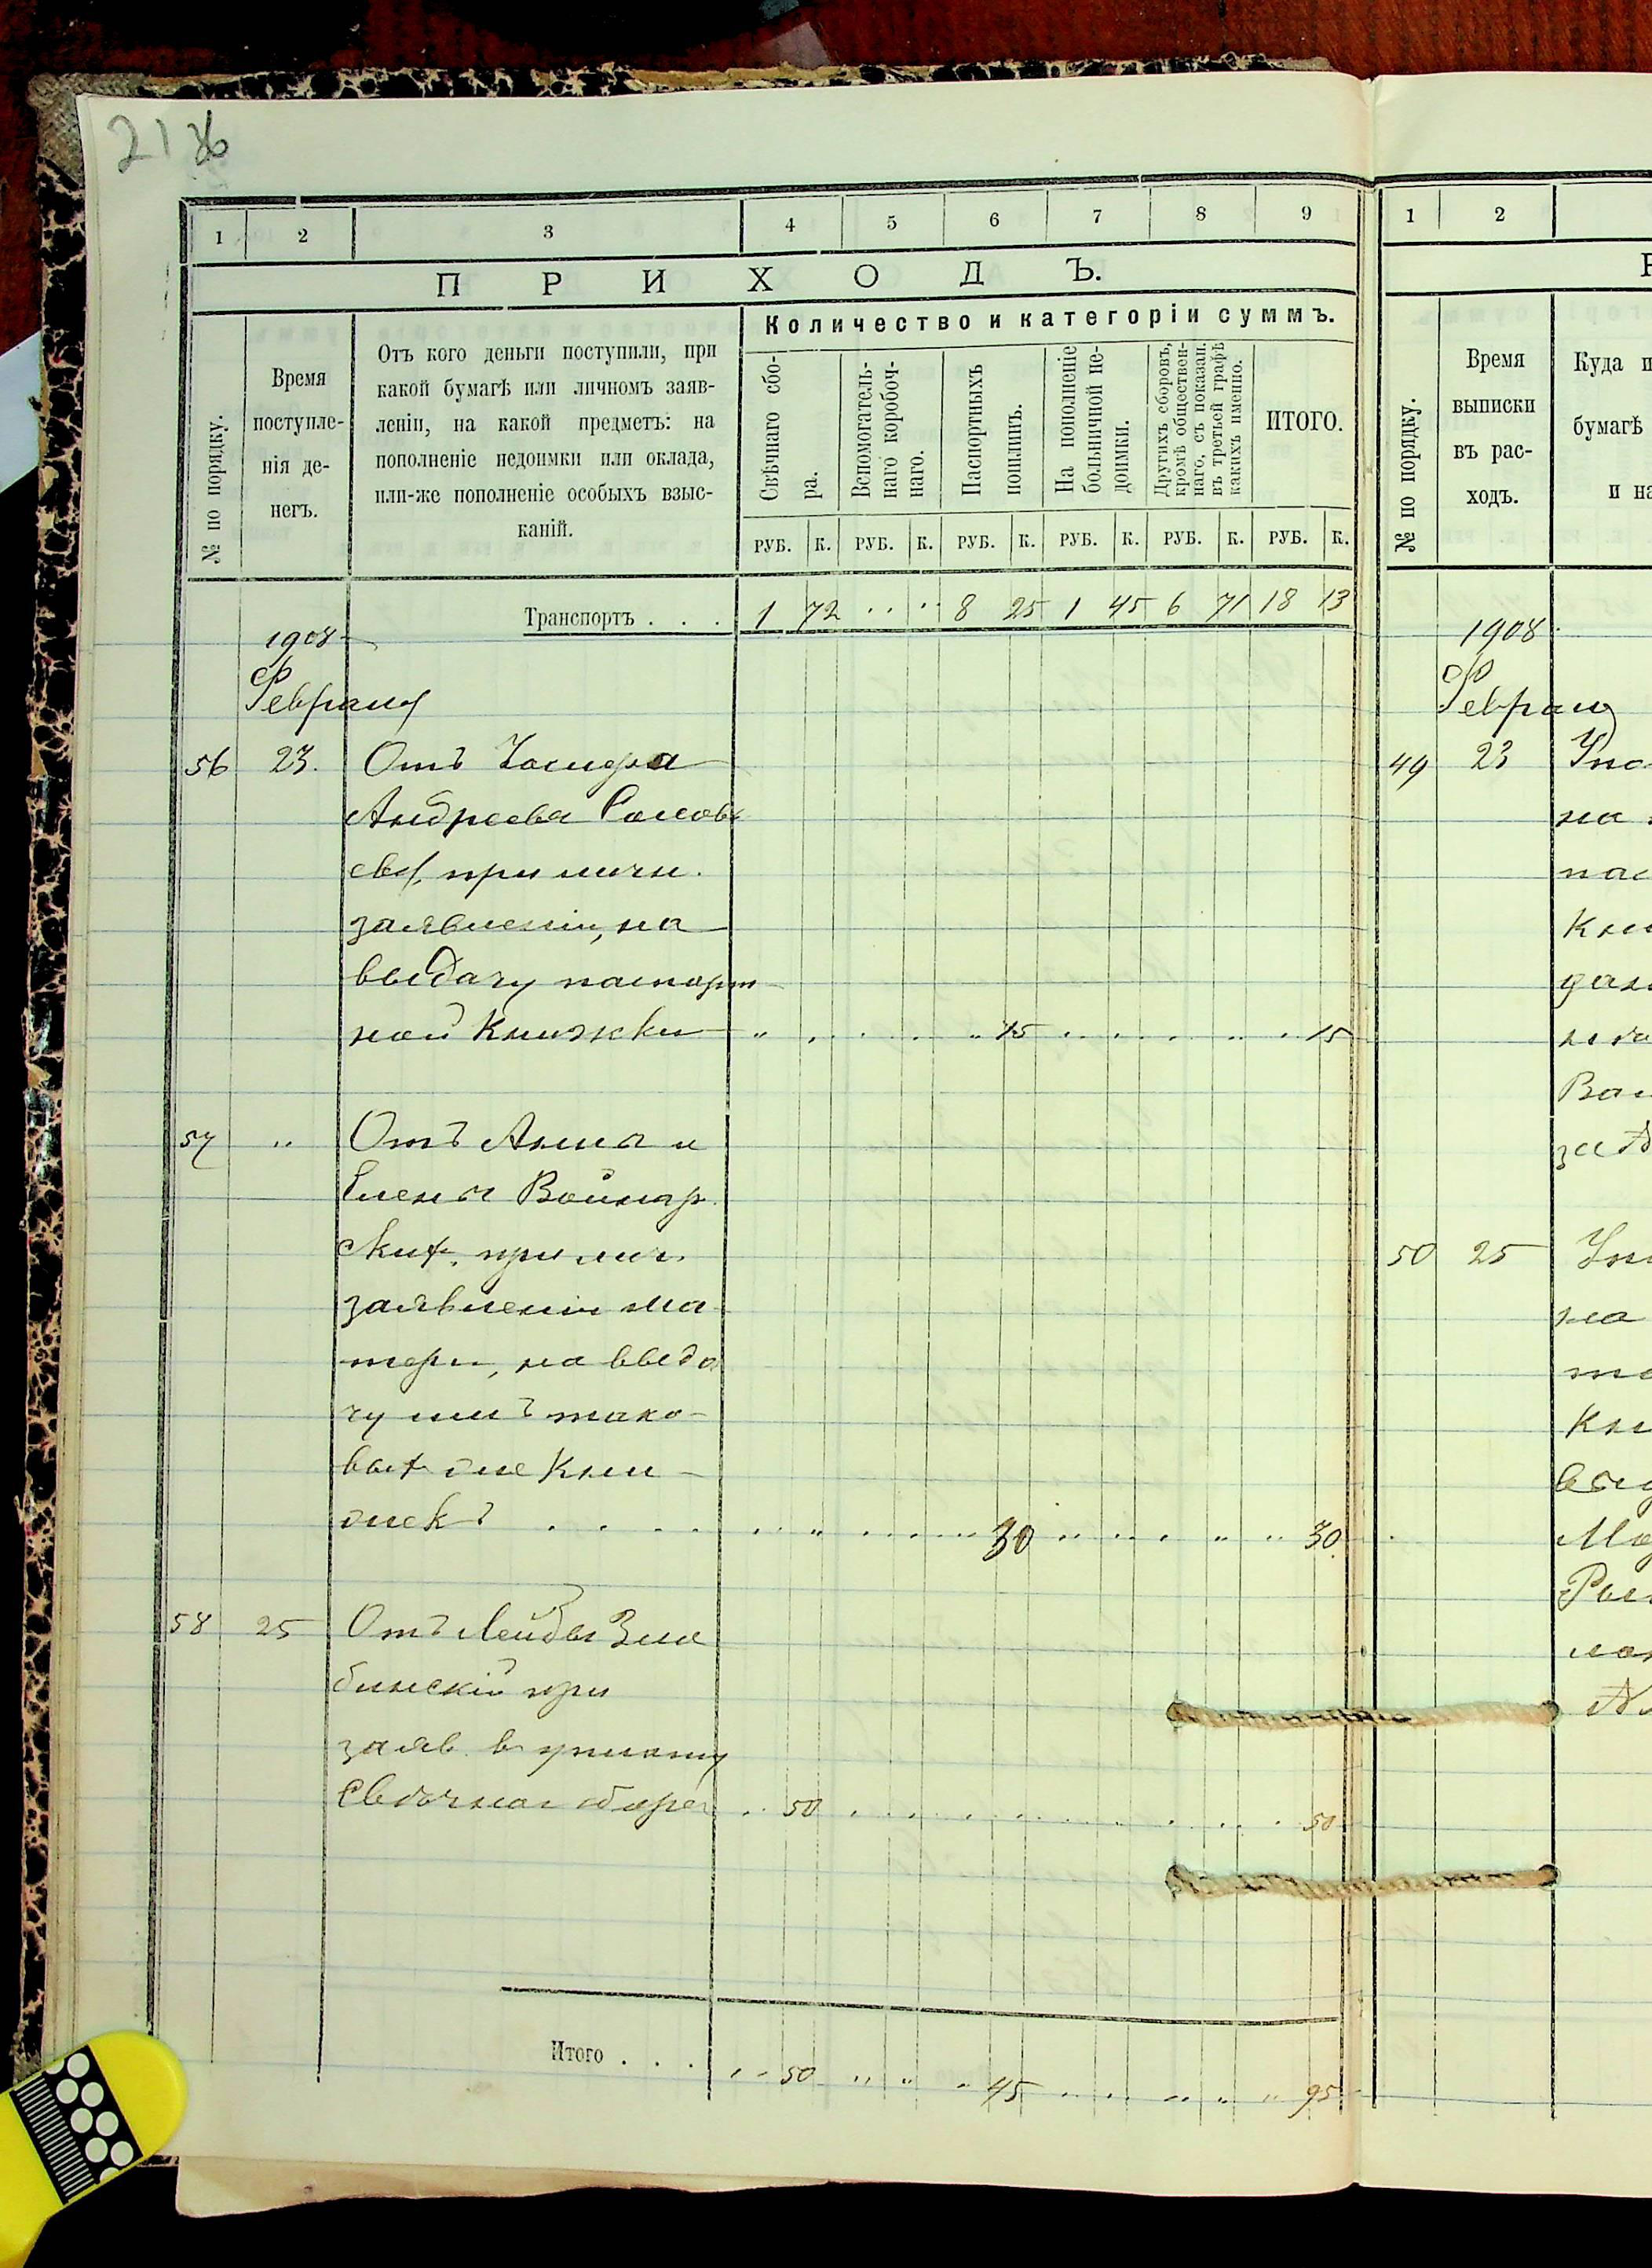 21 36
1 2 3 4 5 6 7 8 9
ПРИХОДЪ.
№ по порядку.
Время
поступле-
нія де-
негъ.
Отъ кого деньги поступили, при
какой бумагѣ или личномъ заяв-
леніи, на какой предметъ: на
пополненіе недоимки или оклада,
или-же пополненіе особыхъ взыс-
каній.
Количество и категоріи суммъ.
Свѣчнаго сбо-
ра.
Вспомогатель-
наго коробоч-
наго.
Паспортныхъ
пошлинъ.
На пополненіе
больничной не-
доимки.
Другихъ сборовъ,
кромѣ обществен-
наго, съ показан.
въ третьей графѣ
какихъ именно.
ИТОГО.
РУБ. К. РУБ. К. РУБ. К. РУБ. К. РУБ. К. РУБ. К.
Транспортъ . . . 1 72 " " 8 25 1 45 6 71 18 13
1908
Февраля
56 23. Отъ
Андреева
при личн.
заявленіи, на
выдачу паспорт
ной Книжки " 15 15
57 " Отъ Анны и
Елены Войнар
скихъ, при лич.
заявленіи ма-
тери, на выда
чу имъ тако-
выхъ же Кни-
жекъ . . . . 30 30
58 25 Отъ Лейбы Зла
бинскій при
заяв. в уплату
Свѣчнаго сбора 50 50
Итого . . . 50 " " 45 95
1 2
№ по порядку.
Время
выписки
въ рас-
ходъ.
Куда
бумагѣ
и на
1908
Февраля
49 23
на
50 25
на